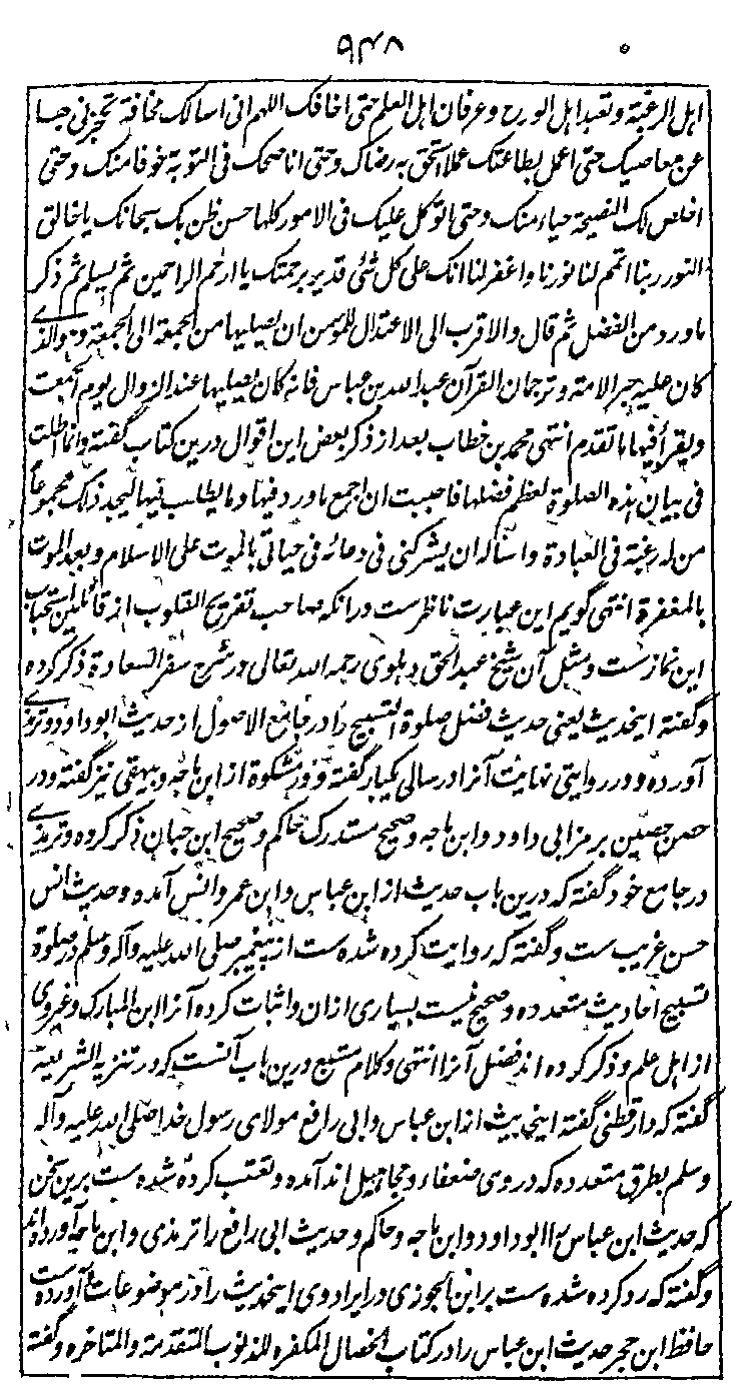 ۹۴۸
اهل الرغبة و تعبد اهل الورع و عرفان اهل العلم حتی اخافک اللهم انی اسالک مخافة تحجزنی بها
عن معاصیک حتی اعمل بطاعتک عملا استحق به رضاک و حتی اناصحک فی التوبة خوفا منک و حتی
اخلص لک النصیحة حیاء منک و حتی اتوکل علیک فی الامور کلها حسن ظن بک سبحانک یا خالق
النور ربنا اتمم لنا نورنا و اغفر لنا انک علی کل شئی قدیر برحمتک یا ارحم الراحمین ثم یسلم ثم ذکر
ما ورد من الفضل ثم قال و الاقرب الی الاعتدال للمؤمن ان یصلیها من الجمعة الی الجمعة و هذا الذی
کان علیه حبر الامة و ترجمان القرآن عبد الله بن عباس فانه کان یصلیها عند الزوال یوم الجمعت
و یقرأ فیها ما تقدم انتهی محمد بن خطاب بعد از ذکر بعض این اقوال درین کتاب گفته و انما اطلت
فی بیان هذه الصلوة لعظم فضلها فاحببت ان اجمع ما ورد فیها و ما یطلب فیها لیجد ذلک مجموعاً
من له رغبة فی العبادة و اسأله ان یشرکنی فی دعائه فی حیاتی بالموت علی الاسلام و بعد الموت
بالمغفرة انتهی گویم این عبارت ناظرست در انکه صاحب تفریح القلوب از قائلین استحباب
این نمازست و مثل آن شیخ عبد الحق دهلوی رحمه الله تعالی در شرح سفر السعادة ذکر کرده
و گفته اینحدیث یعنی حدیث فضل صلوة التسبیح را در جامع الاصول از حدیث ابو داود و ترمذی
آورده و در روایتی نهایت آنرا در سالی یکبار گفته و در مشکوة از ابن ماجه و بیهقی نیز گفته و در
حصن حصین برمز ابی داود و ابن ماجه و صحیح مستدرک حاکم و صحیح ابن حبان ذکر کرده و ترمذی
در جامع خود گفته که درین باب حدیث از ابن عباس و ابن عمرو انس آمده و حدیث انس
حسن غریب ست و گفته که روایت کرده شده ست از پیغمبر صلی الله علیه و آله و سلم در صلوة
تسبیح احادیث متعدده و صحیح نیست بسیاری ازان و اثبات کرده آنرا ابن المبارک و غیر وی
از اهل علم و ذکر کرده اند فضل آنرا انتهی و کلام متبع درین باب آنست که در تنزیه الشریعة
گفته که دارقطنی گفته اینحدیث از ابن عباس و ابی رافع مولای رسول خدا صلی الله علیه و آله
و سلم بطرق متعدده که در وی ضعفاء و مجاهیل اند آمده و تعقب کرده شده ست برین سخن
که حدیث ابن عباس را ابو داود و ابن ماجه و حاکم و حدیث ابی رافع را ترمذی و ابن ماجه آورده اند
و گفته که رد کرده شده ست بر ابن الجوزی در ایراد وی اینحدیث را در موضوعات و آورده ست
حافظ ابن حجر حدیث ابن عباس را در کتاب الخصال المکفره للذنوب المتقدمة و المتاخره و گفته